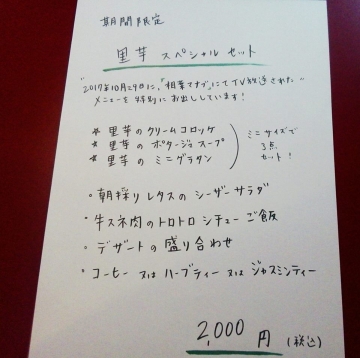 期間限定
里芋 スペシャル セット
"2017年10月29日に、"相葉マナブ"にてTV放送された"
メニューを特別にお出ししています!
★ 里芋のクリームコロッケ
★ 里芋の ポタージュ スープ
★ 里芋の ミニグラタン
ミニサイズで
3点
セット!
・朝採り レタスの シーザー サラダ
・牛スネ肉のトロトロ シチュー ご飯
・デザートの 盛り合わせ
・コーヒー 又は ハーブティー 又は ジャスミンティー
2,000 円 (税込)